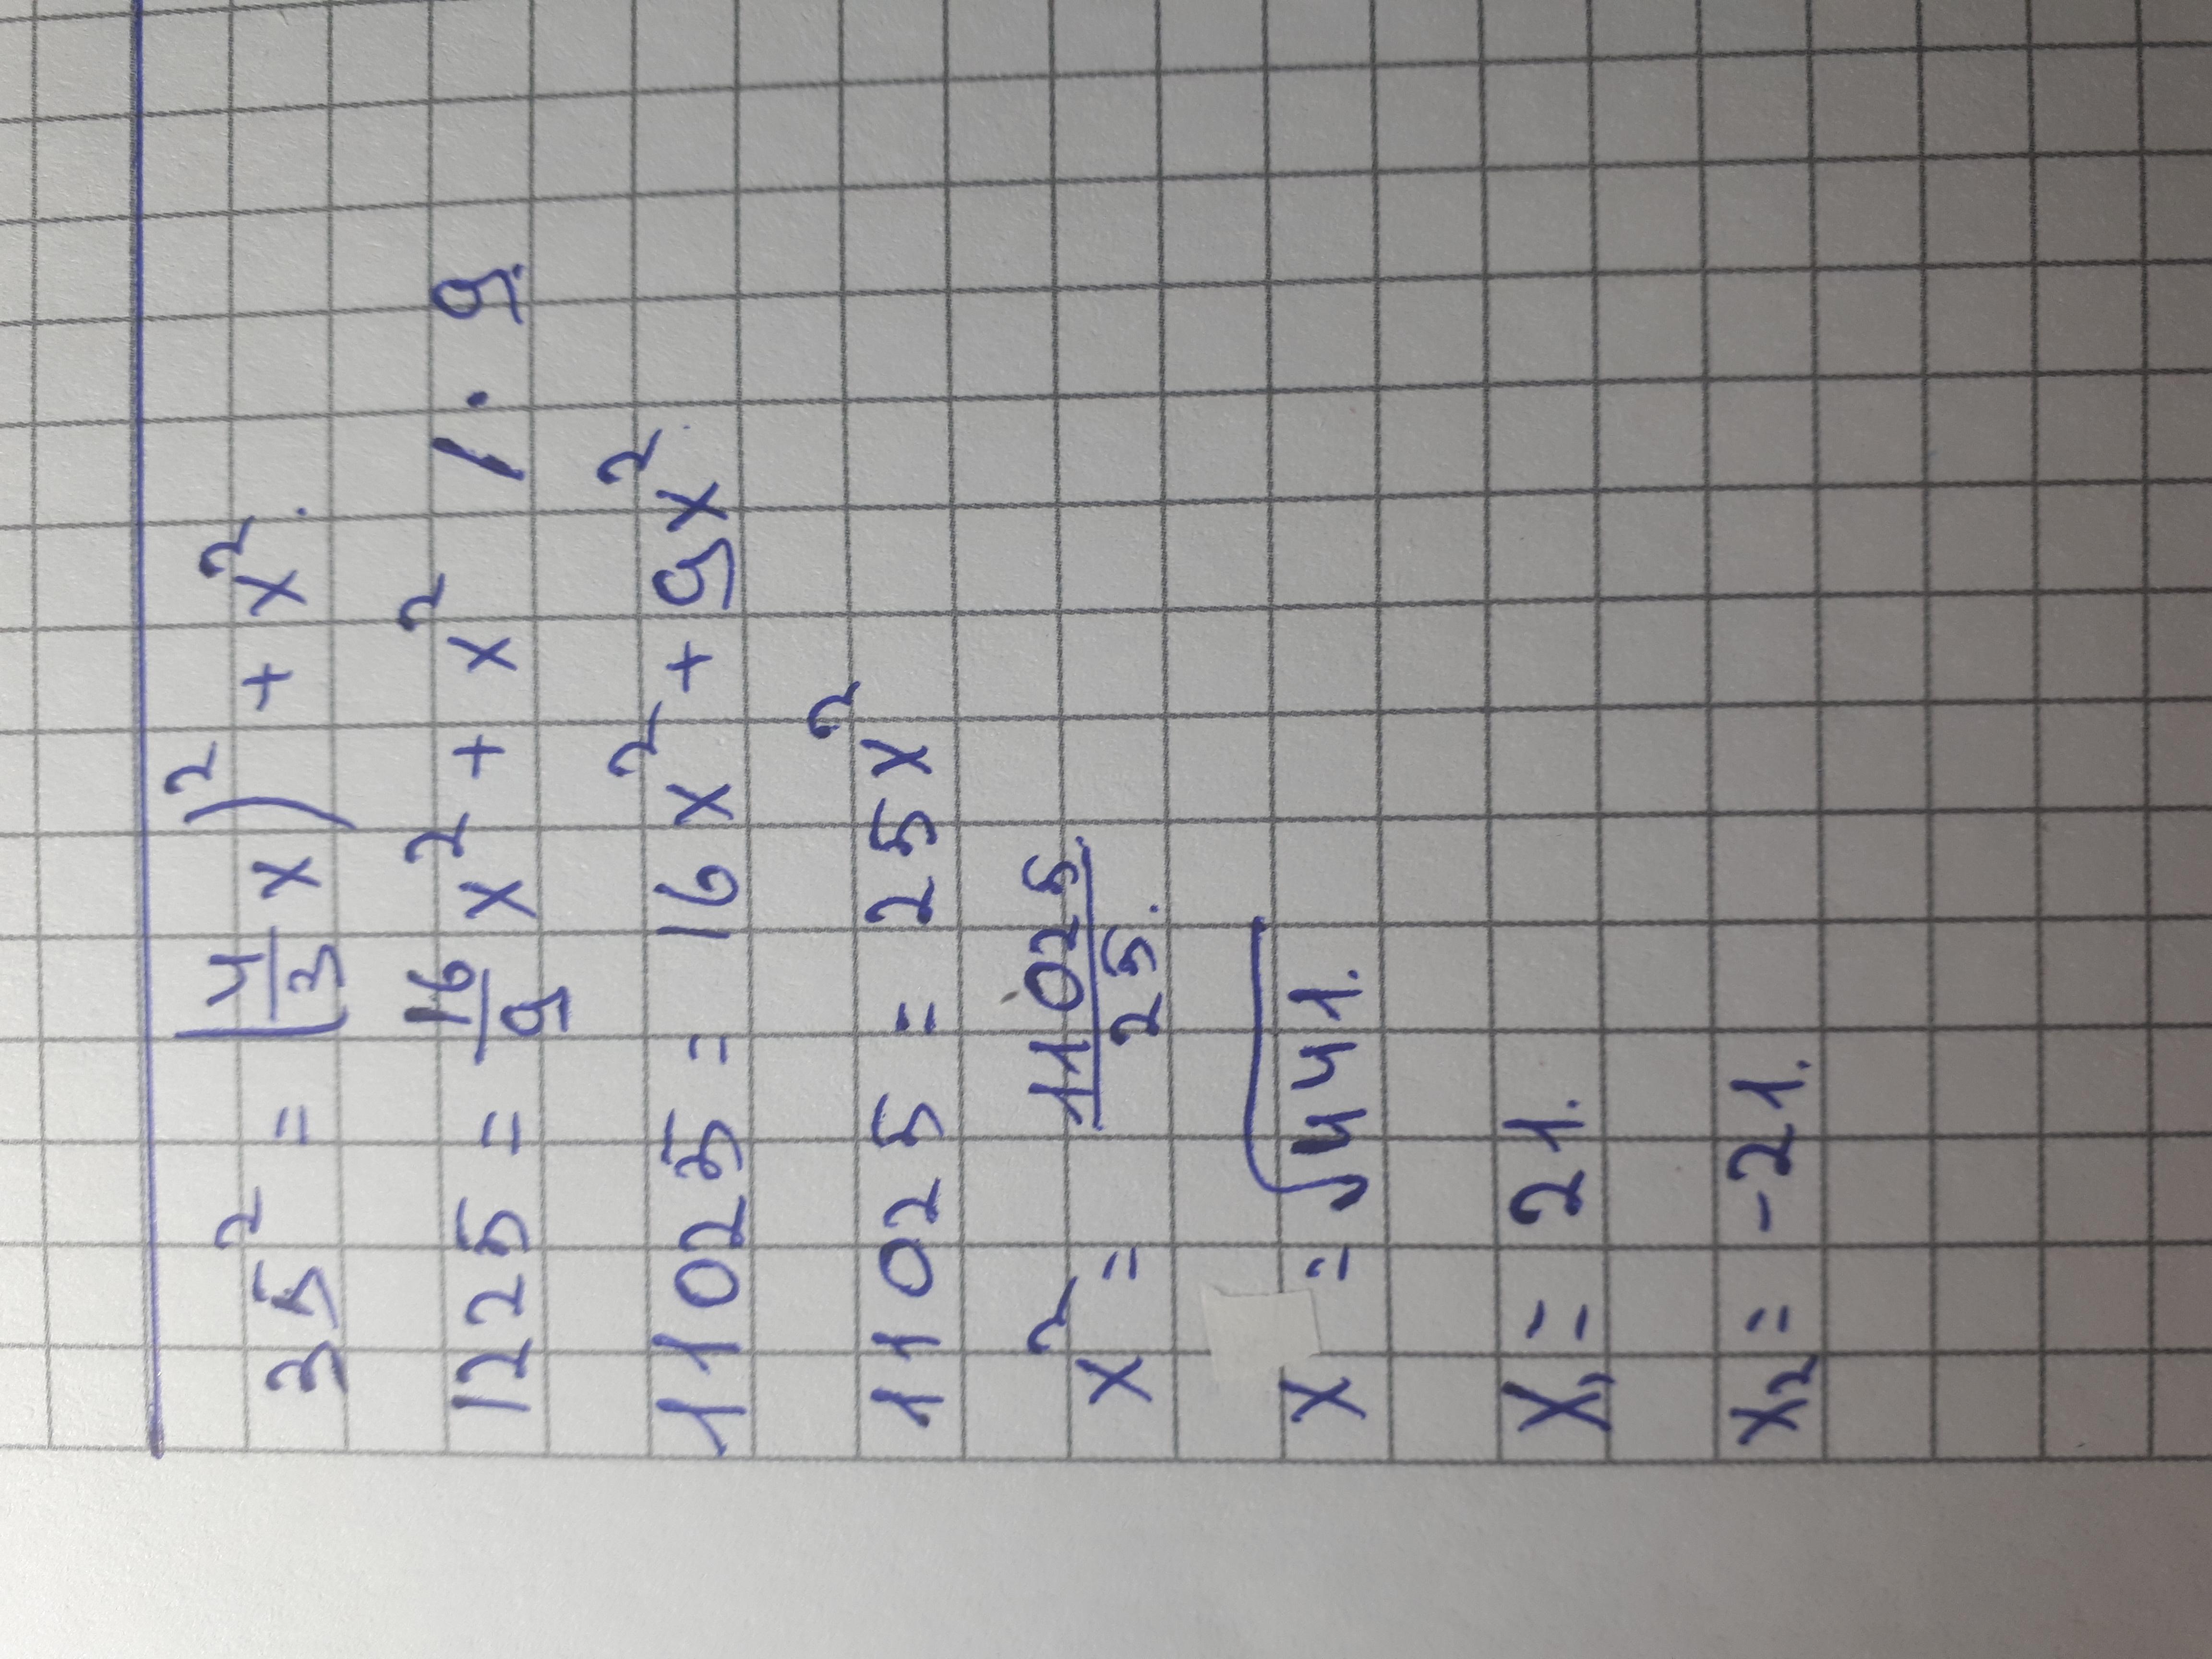 35² = (4/3 x)² + x².
1225 = 16/9 x² + x² / · 9.
11025 = 16x² + 9x².
11025 = 25x²
x² = 11025/25.
x = √441.
x₁ = 21.
x₂ = -21.